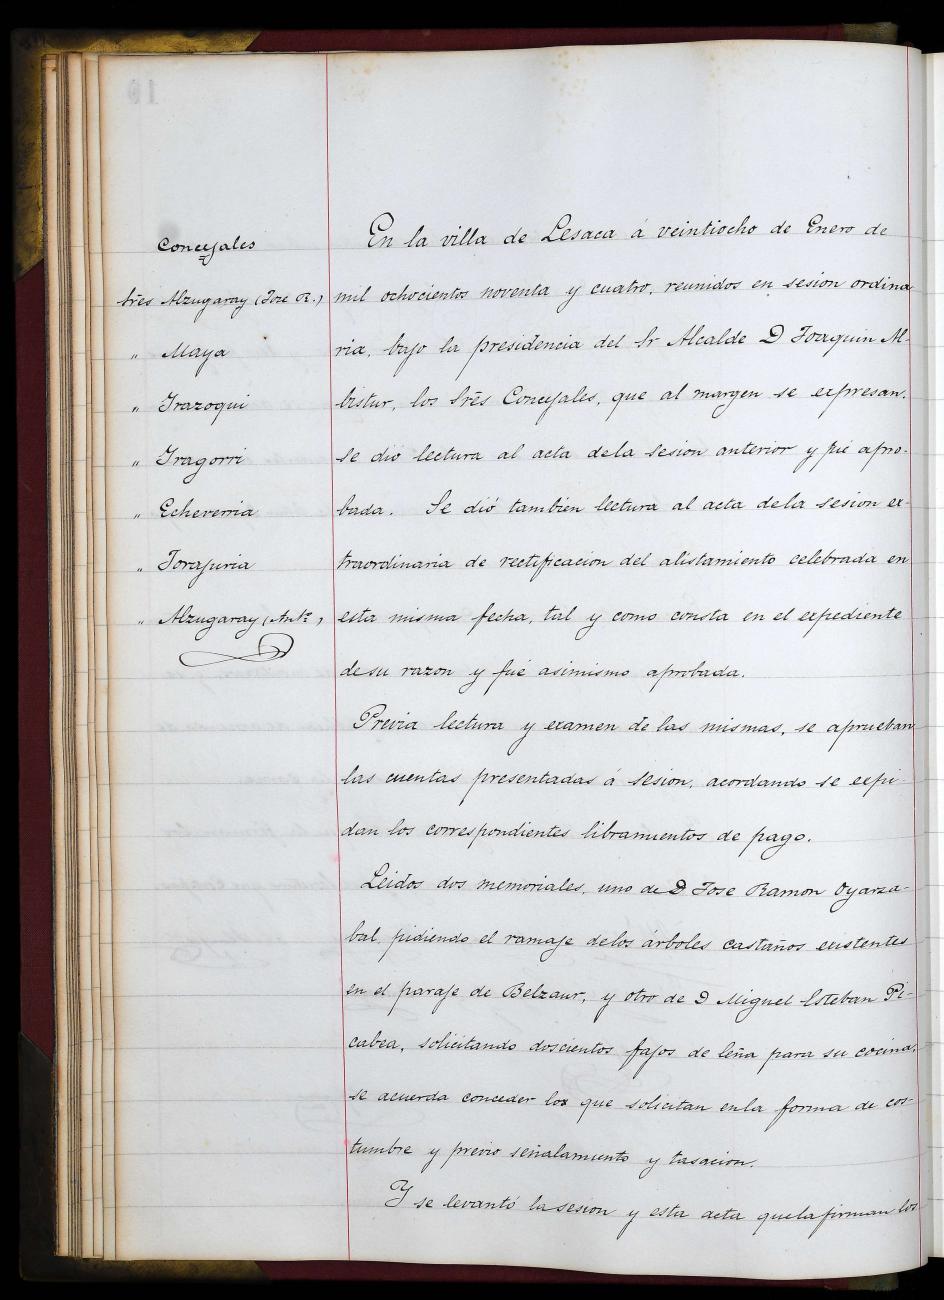 Concejales
Sres Alzugaray (Jose R.)
" Maya
" Irazoqui
" Iragorri
" Echeverria
" Torajuria
" Alzugaray (Antº)
En la villa de Lesaca á veintiocho de Enero de
mil ochocientos noventa y cuatro, reunidos en sesion ordina
ria, bajo la presidencia del Sr Alcalde D Joaquin Al-
bistur, los Sres Concejales, que al margen se expresan,
se dió lectura al acta dela sesion anterior y fué apro-
bada. Se dió tambien lectura al acta dela sesion ex-
traordinaria de rectificacion del alistamiento celebrada en
esta misma fecha, tal y como consta en el expediente
de su razon y fué asimismo aprobada.
Previa lectura y examen de las mismas, se aprueban
las cuentas presentadas á sesion, acordando se expi-
dan los correspondientes libramientos de pago.
Leidos dos memoriales, uno de D Jose Ramon Oyarza-
bal, pidiendo el ramaje delos árboles castaños existentes
en el paraje de Belzaur, y otro de D Miguel Esteban Pi-
cabea, solicitando doscientos fajos de leña para su cocina,
se acuerda conceder los que solicitan enla forma de cos-
tumbre y previo señalamiento y tasacion.
Y se levantó la sesion y esta acta que la firman los